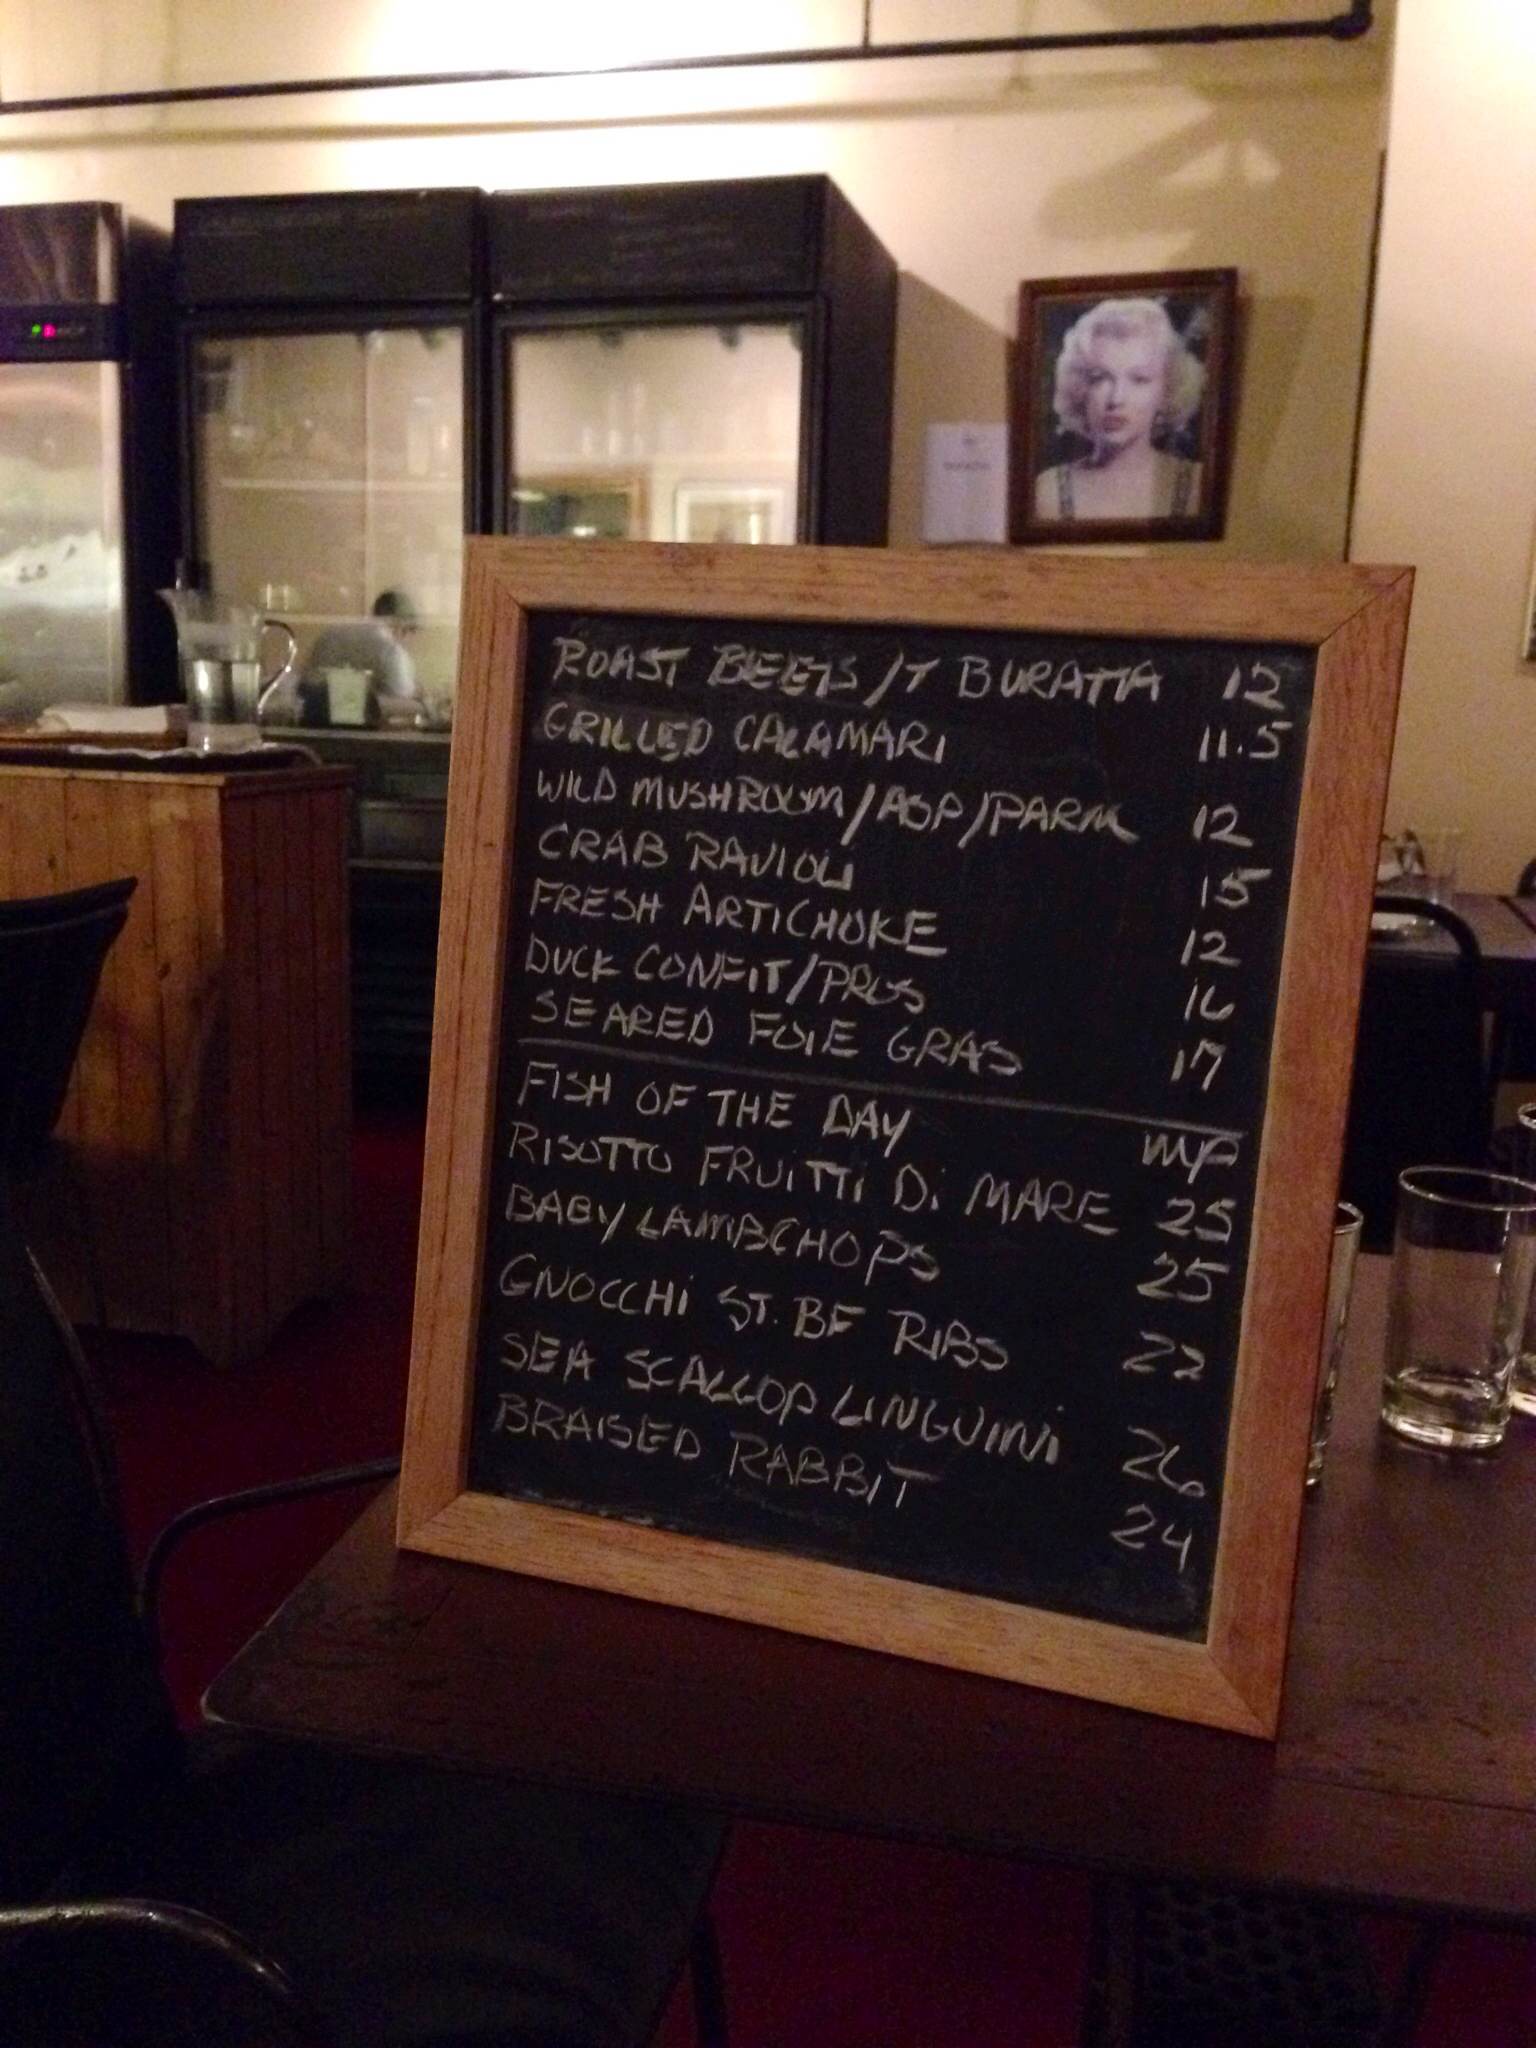 ROAST BEETS/T BURATTA 12
GRILLED CALAMARI 11.5
WILD MUSHROOM/ASP/PARM 12
CRAB RAVIOLI 15
FRESH ARTICHOKE 12
DUCK CONFIT/PROS 16
SEARED FOIE GRAS 17
FISH OF THE DAY MP
RISOTTO FRUITTI Di MARE 25
BABY LAMBCHOPS 25
GNOCCHi ST. BF RIBS 22
SEA SCALLOP LINGUINi 26
BRAISED RABBIT 24